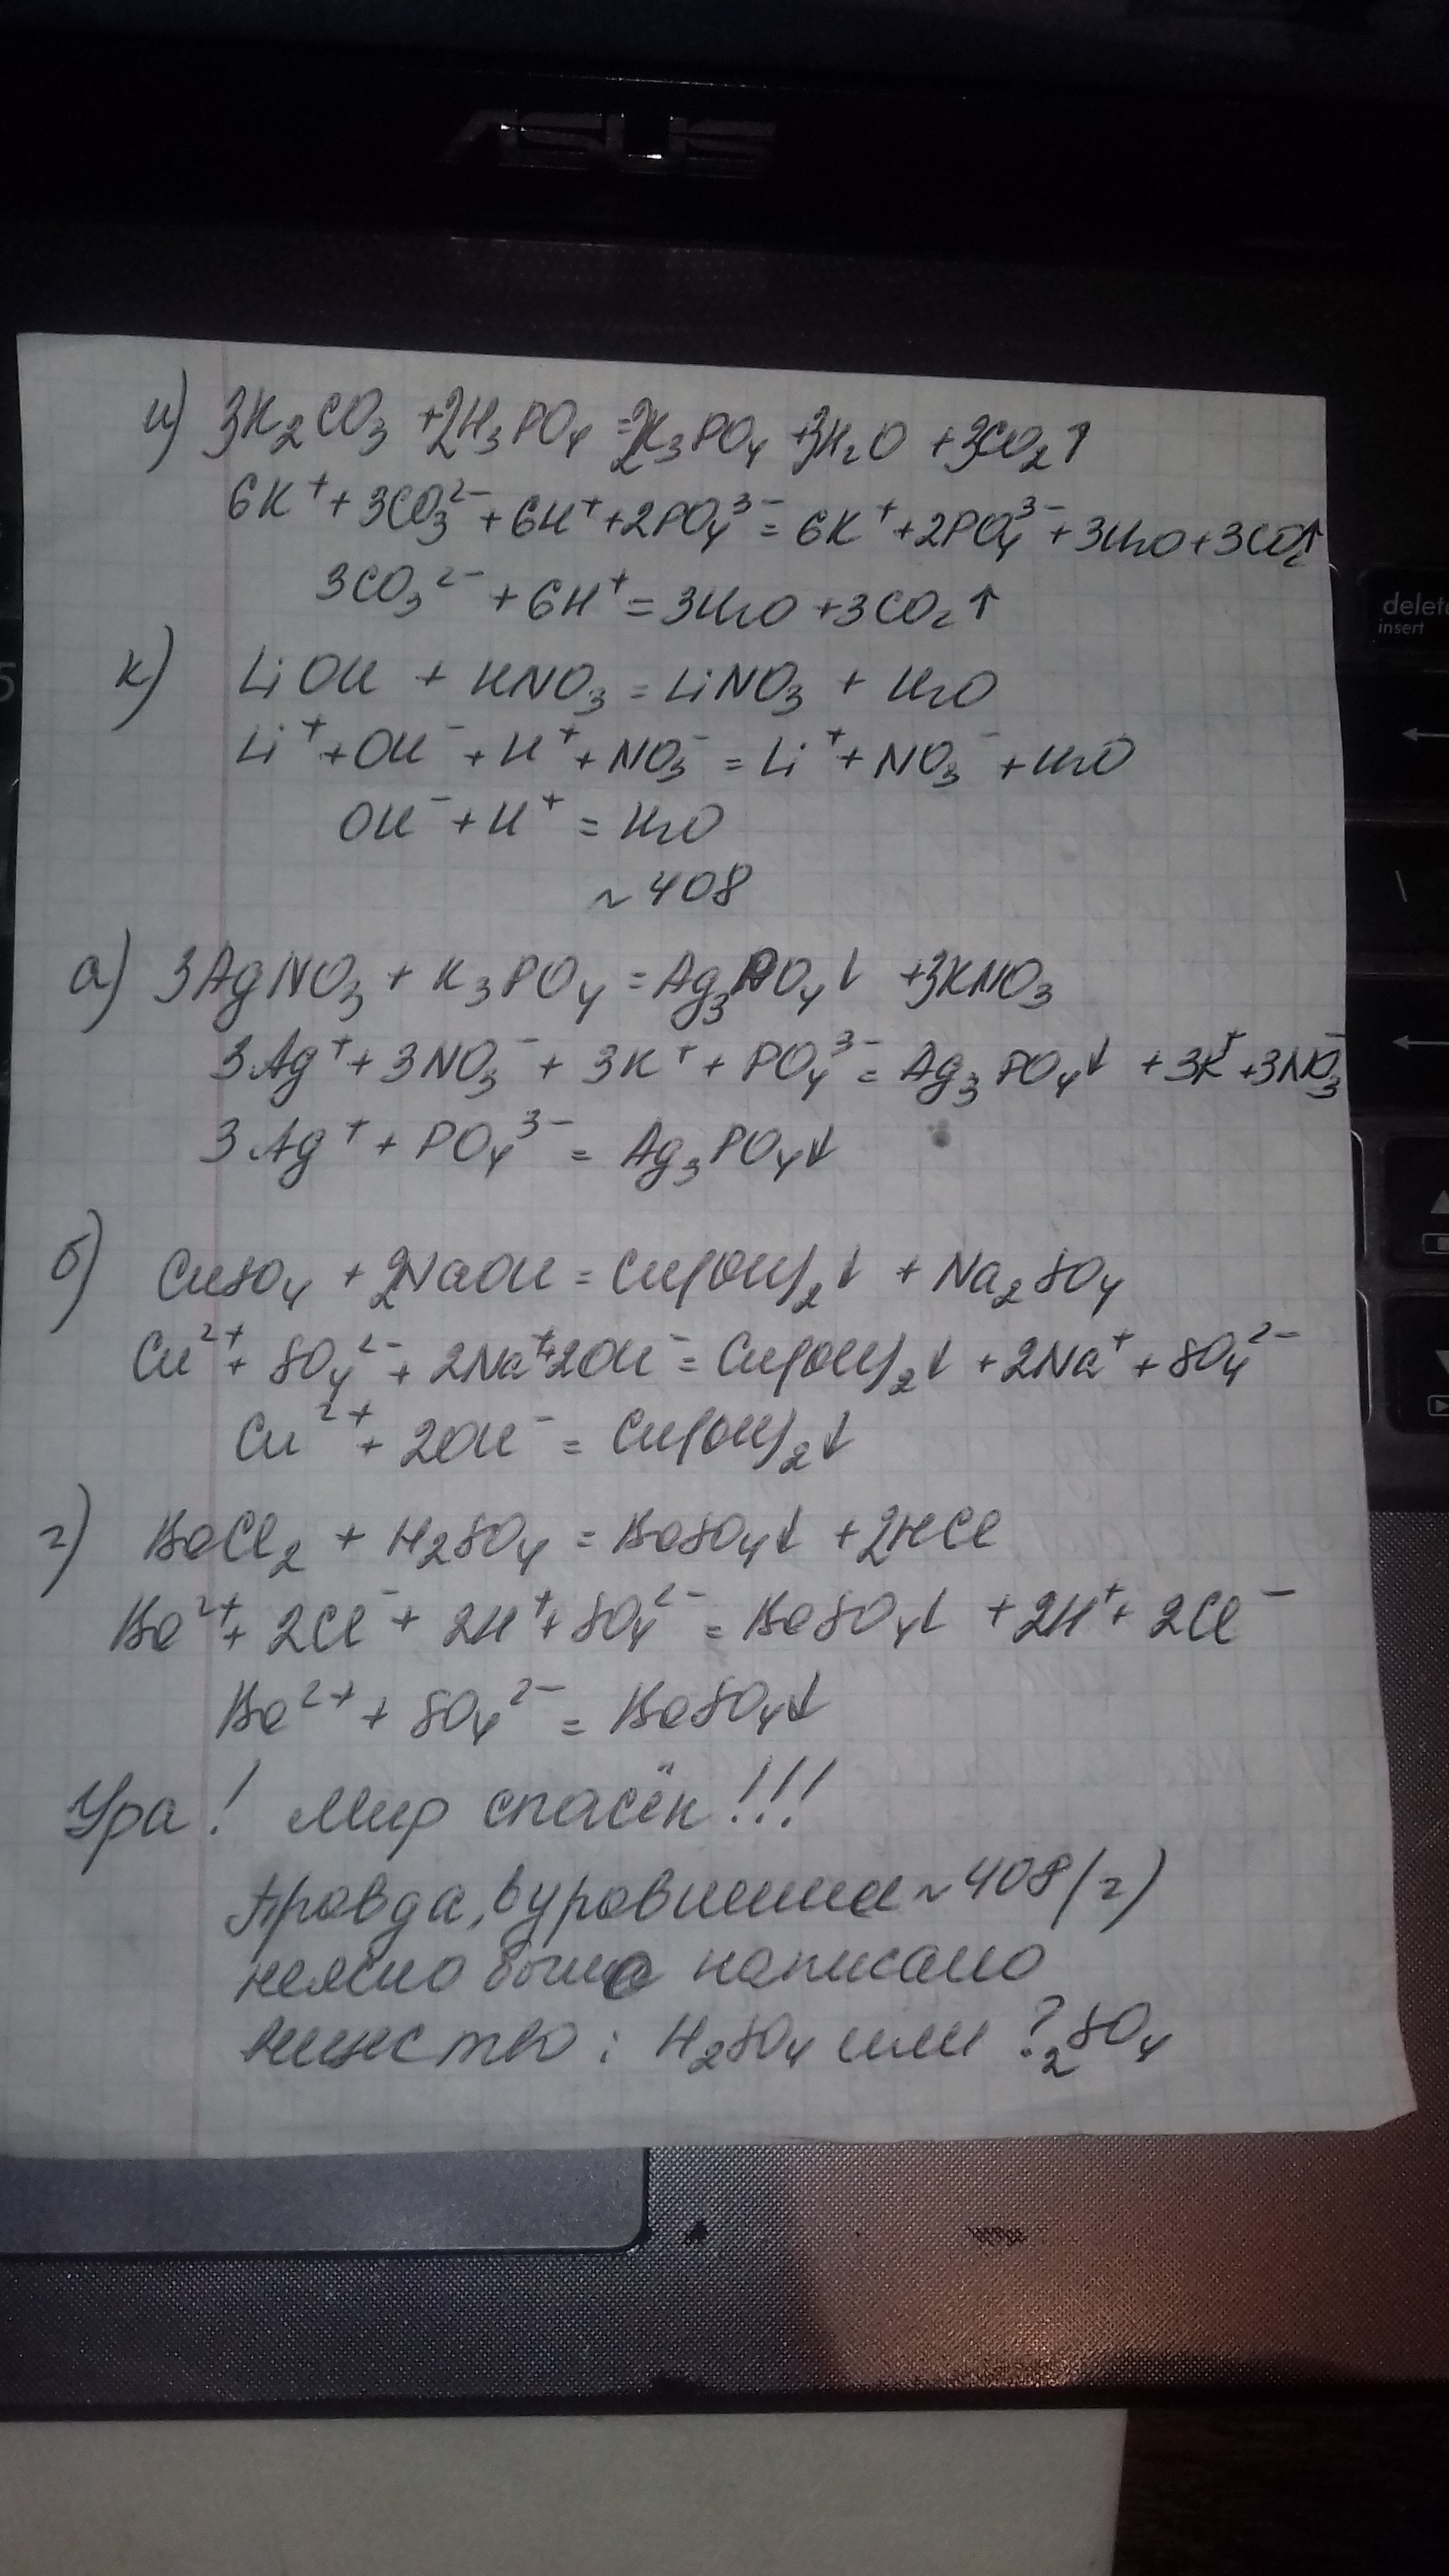 ASUS
и) 3K₂CO₃ +2H₃PO₄ =2K₃PO₄ +3H₂O +3CO₂↑
6K⁺ + 3CO₃²⁻ + 6H⁺ + 2PO₄³⁻ = 6K⁺ + 2PO₄³⁻ + 3H₂O + 3CO₂↑
delete
insert
3CO₃²⁻ + 6H⁺ = 3H₂O + 3CO₂↑
к) LiOH + HNO₃ = LiNO₃ + H₂O
Li⁺ + OH⁻ + H⁺ + NO₃⁻ = Li⁺ + NO₃⁻ + H₂O
OH⁻ + H⁺ = H₂O
~408
а) 3AgNO₃ + K₃PO₄ = Ag₃PO₄↓ +3KNO₃
3Ag⁺ + 3NO₃⁻ + 3K⁺ + PO₄³⁻ = Ag₃PO₄↓ + 3K⁺ + 3NO₃⁻
3Ag⁺ + PO₄³⁻ = Ag₃PO₄↓
б) CuSO₄ + 2NaOH = Cu(OH)₂↓ + Na₂SO₄
Cu²⁺ + SO₄²⁻ + 2Na⁺ + 2OH⁻ = Cu(OH)₂↓ + 2Na⁺ + SO₄²⁻
Cu²⁺ + 2OH⁻ = Cu(OH)₂↓
г) BaCl₂ + H₂SO₄ = BaSO₄↓ + 2HCl
Ba²⁺ + 2Cl⁻ + 2H⁺ + SO₄²⁻ = BaSO₄↓ + 2H⁺ + 2Cl⁻
Ba²⁺ + SO₄²⁻ = BaSO₄↓
Ура! Мир спасён!!!
Правда, в уравнении ~408(г)
неясно было написано
вещество: H₂SO₄ или ?₂SO₄